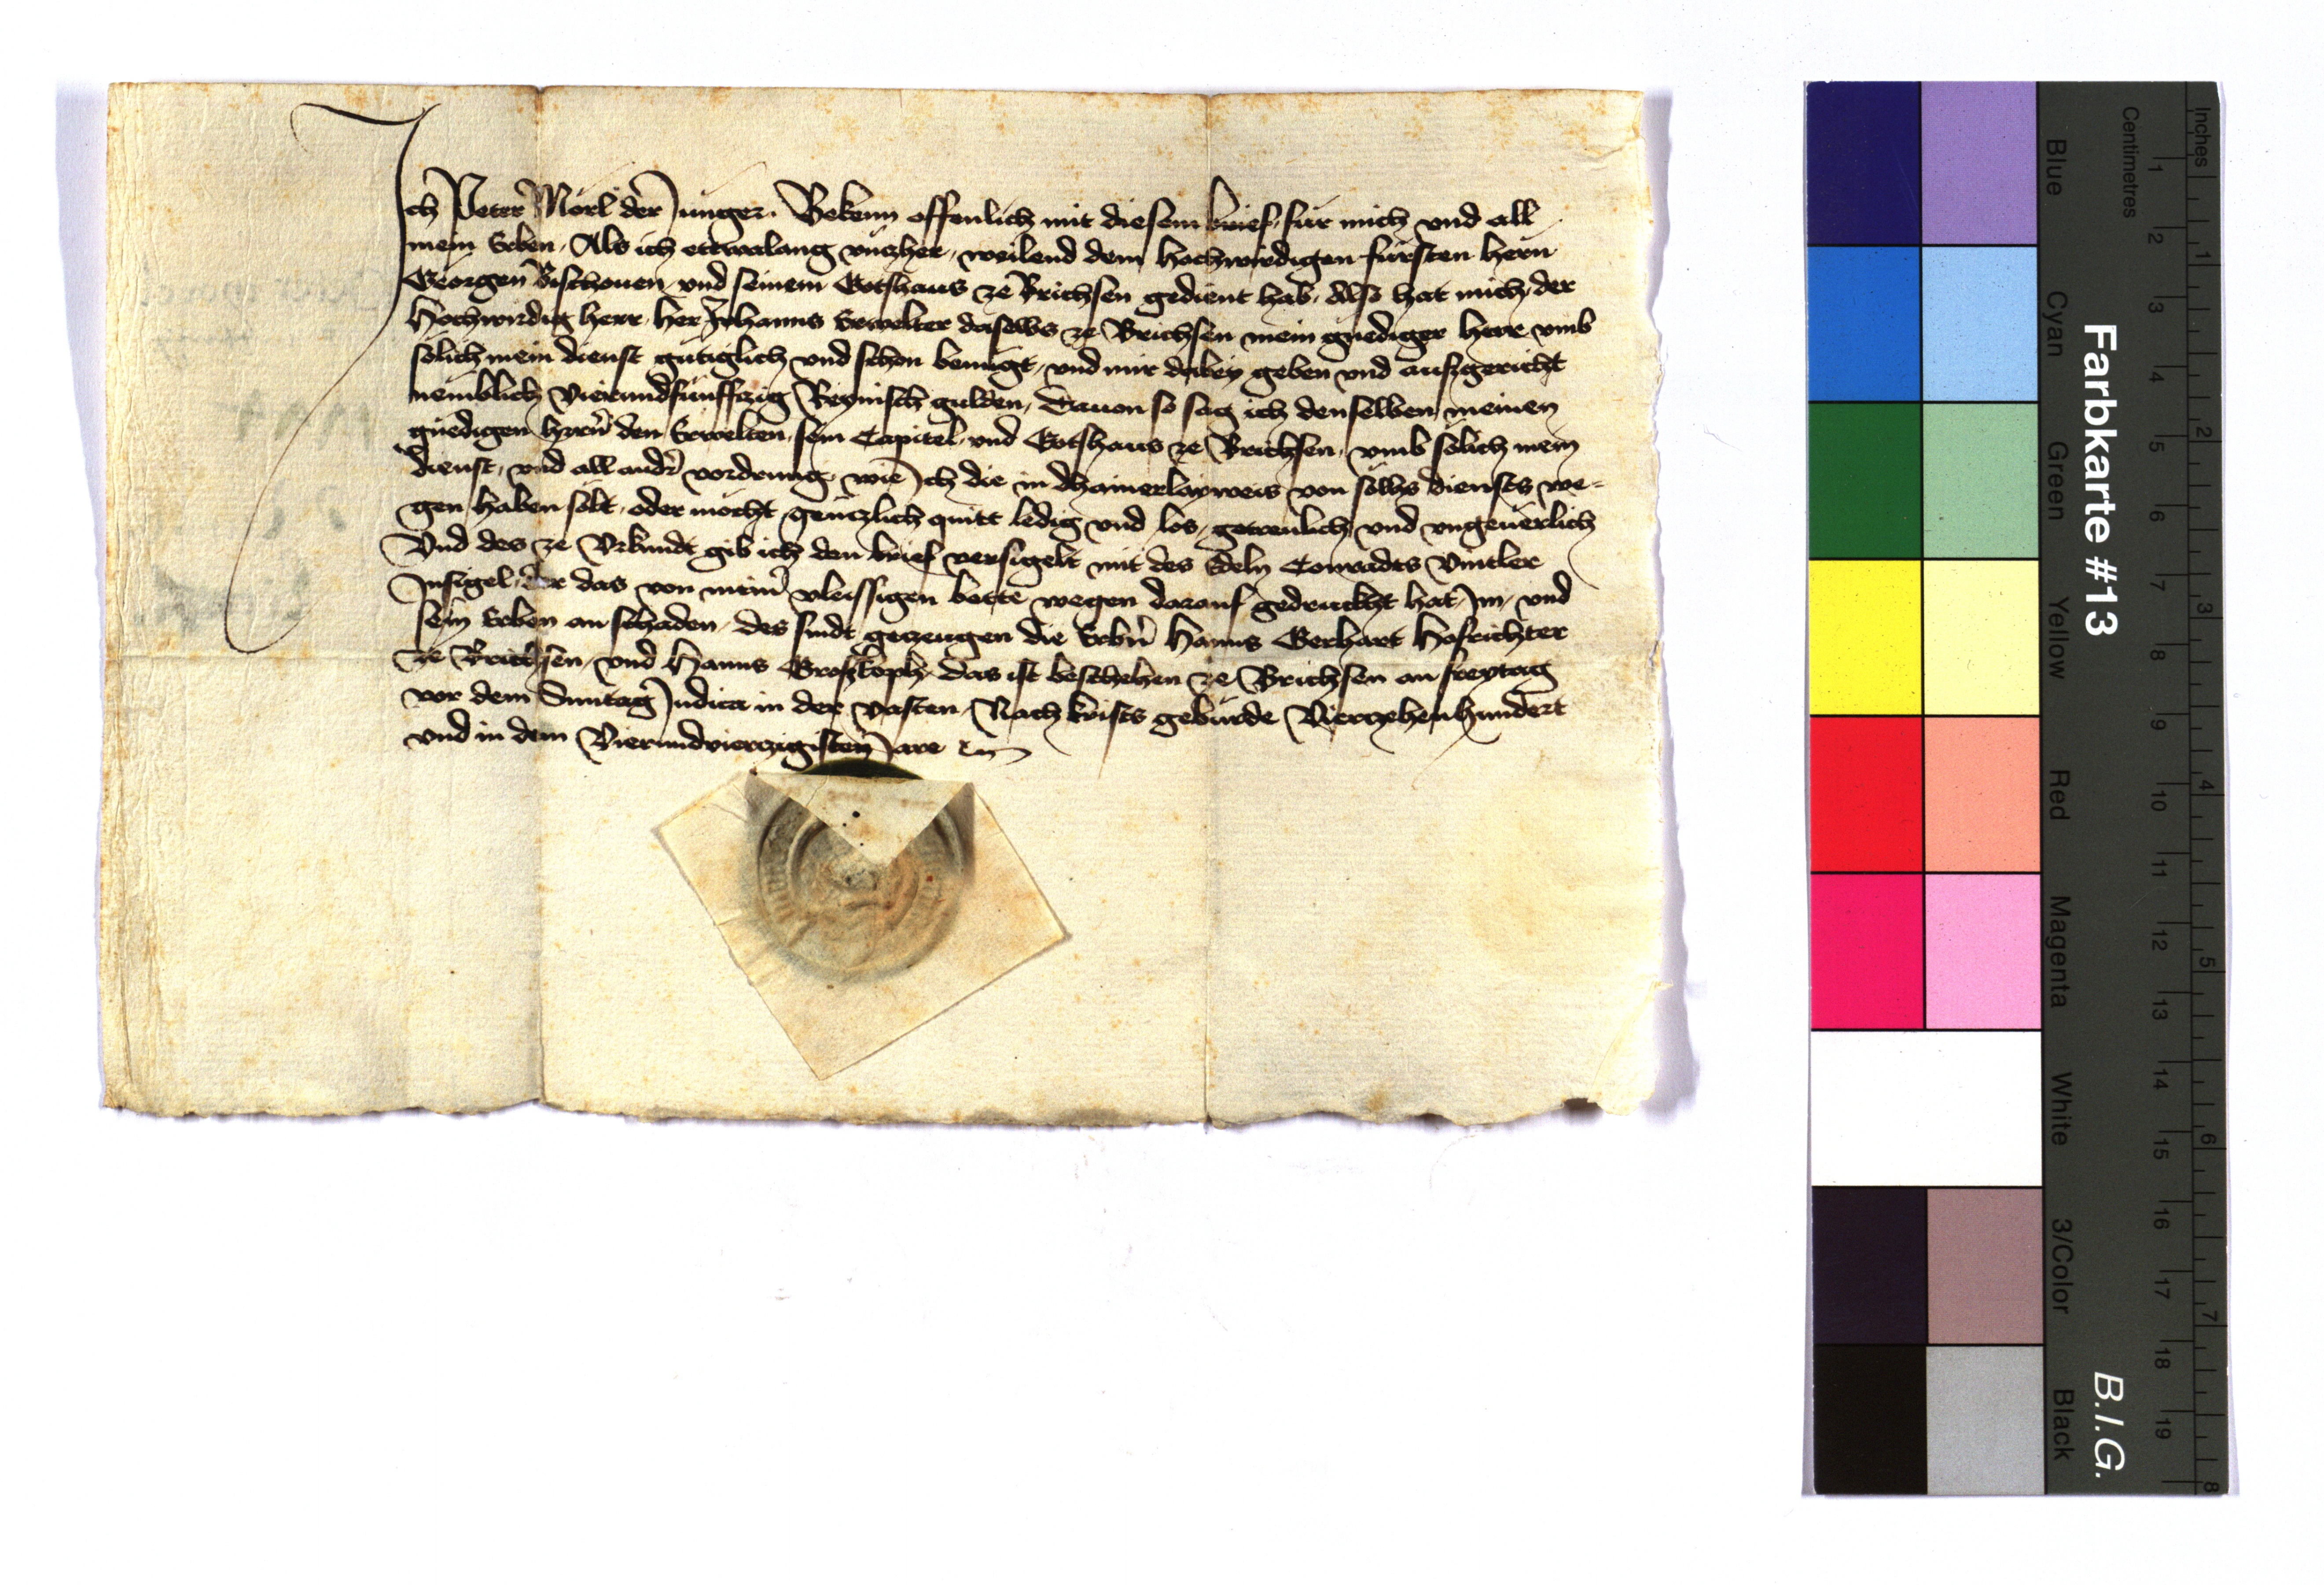 Ich Peter Mörl der Junger. Bekenn offenlich mit diesem brief, für mich vnd all
mein Erben, Als ich ettwalang vnczher, weilend dem hochwirdigen fürsten hern
Georgen Bischouen vnd seinem Gotshaus ze Brichsen gedient hab, Also hat mich, der
Hochwirdig herr, her Johanns Erwelter daselbs ze Brichsen mein gnediger herr vmb
solich mein dienst gütiglich vnd schon benügt, vnd mir dabey geben vnd auszgericht
nemblich Vierundfünffczig Reynisch gulden, Dauon so sag ich denselben meinen
gnedigen herrn den Erwelten, sein Capitel, vnd Gotshaus ze Brichsen, vmb solich mein
dienst, vnd all andr vordrung, wie Ich die in dhainerlayweis von sölhs diensts we-
gen haben solt, oder möcht, genczlich quitt ledig vnd los, getreulich vnd vngeuerlich
Vnd des ze Vrkundt gib ich den brief versigelt mit des Edeln Conradts Vintler
Insigel, der das von meiner vleissigen bette wegen darauf gedruckht hat, Im, vnd
sein Erben an schaden, des sindt geczeugen die Erbern Hanns Gerhart Hofrichter
ze Brichsen, vnd Hanns Groszkoph, das ist beschehen ze Brichsen an freytag
vor dem Sunntag Judica in der vasten, Nach krists gebürde Vierczehenhundert
vnd in dem Vierundvierczigisten Jare
Farbkarte #13
B.I.G.
Inches
Centimetres
1 2 3 4 5 6 7 8 9 10 11 12 13 14 15 16 17 18 19
1 2 3 4 5 6 7 8
Blue
Cyan
Green
Yellow
Red
Magenta
White
3/Color
Black